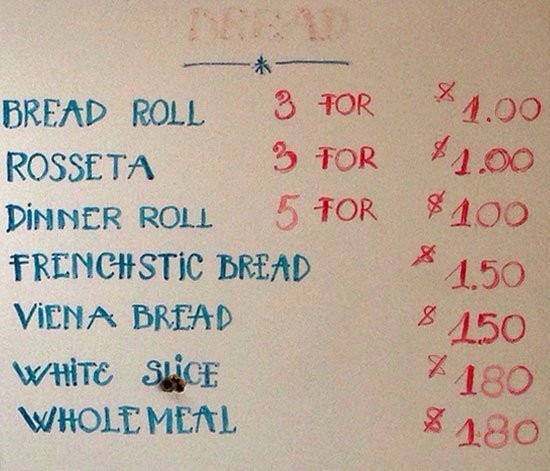 BREAD
BREAD ROLL 3 FOR $1.00
ROSSETA 3 FOR $1.00
DINNER ROLL 5 FOR $1.00
FRENCHSTIC BREAD $1.50
VIENA BREAD $1.50
WHITE SLICE $1.80
WHOLEMEAL $1.80